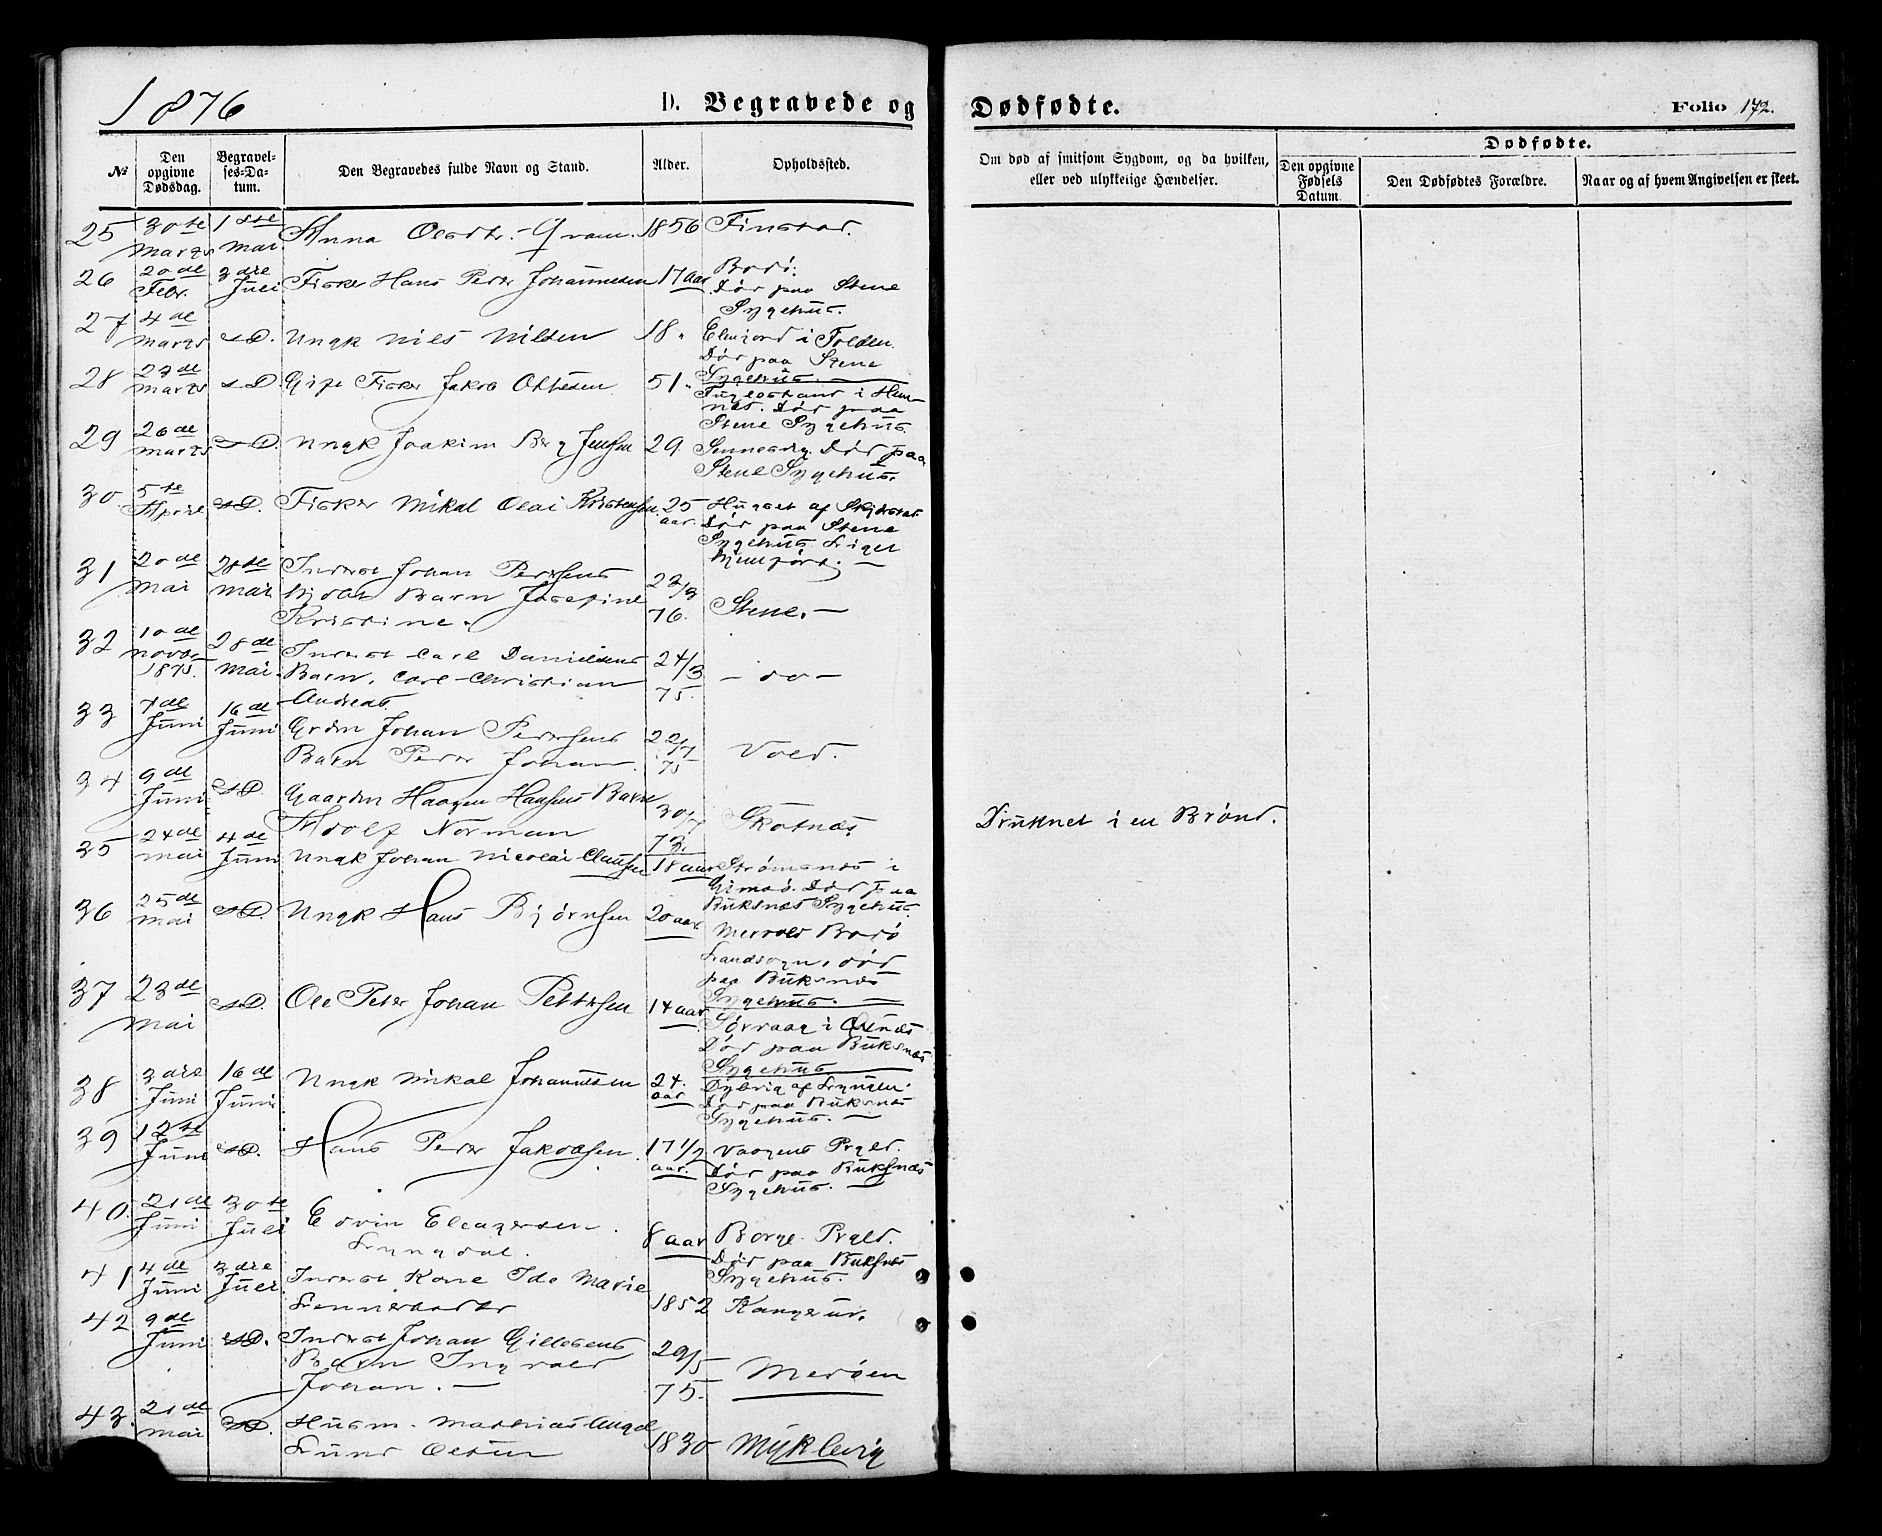 1876
D. Begravede og Dødfødte.
Folio 172.
No
Den opgivne Dødsdag.
Begravelses-Datum.
Den Begravedes fulde Navn og Stand.
Alder.
Opholdssted.
Om død af smitsom Sygdom, og da hvilken, eller ved ulykkelige Hændelser.
Dødfødte.
Den opgivne Fødsels Datum.
Den Dødfødtes Forældre.
Naar og af hvem Angivelsen er skeet.
25 30te Marzs 18de Mai Anna Olsdtr. Gram. 1856 Finstad.
26 20de Febr. 3die Juli Fisker Hans Peder Johannesen 17 aar Bodö.
Död paa Stene
Sygehus.
27 4de Marzs s.D. Ungk Nils Nilsen 18. i Folden.
Död paa Stene
Sygehus.
28 23de Marzs s.D. Gift Fisker Jakob Ottesen 51. Fuglestrand i Hem-
nes. Död paa
Stene Sygehus.
29 26de Marzs s.D. Ungk Joakim Berg Jensen 29. Sennesvig. Död paa
Stene Sygehus.
30. 5te April s.D. Fisker Mikal Olai Kristensen. 25 aar. af
Död paa Stene
Sygehus. Liget
hjemført.
31 20de Mai 28de Mai Inderst Johan Pedersens
Barn Josefine
Kristine. 22/3 76. Stene.
32 10de Novbr 1875. 28de Mai Inderst Carl Danielsens
Barn, Carl Christian
Andreas. 24/3 75. - do -
33 7de Juni 16de Juni Grdm Johan Pedersens
Barn Peder Johan. 22/7 75 Vold.
34 9de Juni s.D. Gaardm Haagen Hansens Barn
Adolf Norman 30/7 73. Skotnæs Druknet i en Brønd.
35 24de Mai 4de Juni Ungk Johan Nicolai Clausen 18 aar Strömsnes i
Gimsö. Död paa
Buksnæs Sygehus.
36 25de Mai s.D. Ungk Hans Bjørnsen 20 aar Bodö
Landsogn, död
paa Buksnæs
Sygehus.
37 23de Mai s.D. Ole Peter Johan Pettersen 14 aar Sörvaag i Öxnæs
Död paa Buksnæs
Sygehus
38 3die Juni 16de Juni Ungk Mikal Johannesen 24. aar Dybvig af Lyngen.
Död paa Buksnæs
Sygehus.
39 12te Juni s.D. Hans Peder Jakobsen. 17 1/2 aar. Vaagens Prgld.
Död paa Buksnæs
Sygehus.
40. 21de Juni 30te Juli Edvin Eleazersen.
Lyngdal. 8 aar Borge Prgld.
Död paa Buksnæs
Sygehus.
41 4de Juni 3die Juli. Inderst Kone Ida Marie
Lennersdatter 1852 Kangerur.
42 9de Juni s.D. Inderst Johan Gillesens
Barn Ingvald
Johan. 29/5 75. Meröen
43. 21de Mai s.D. Husm. Mathias Angel
Lund Olsen 1830 Myklevig